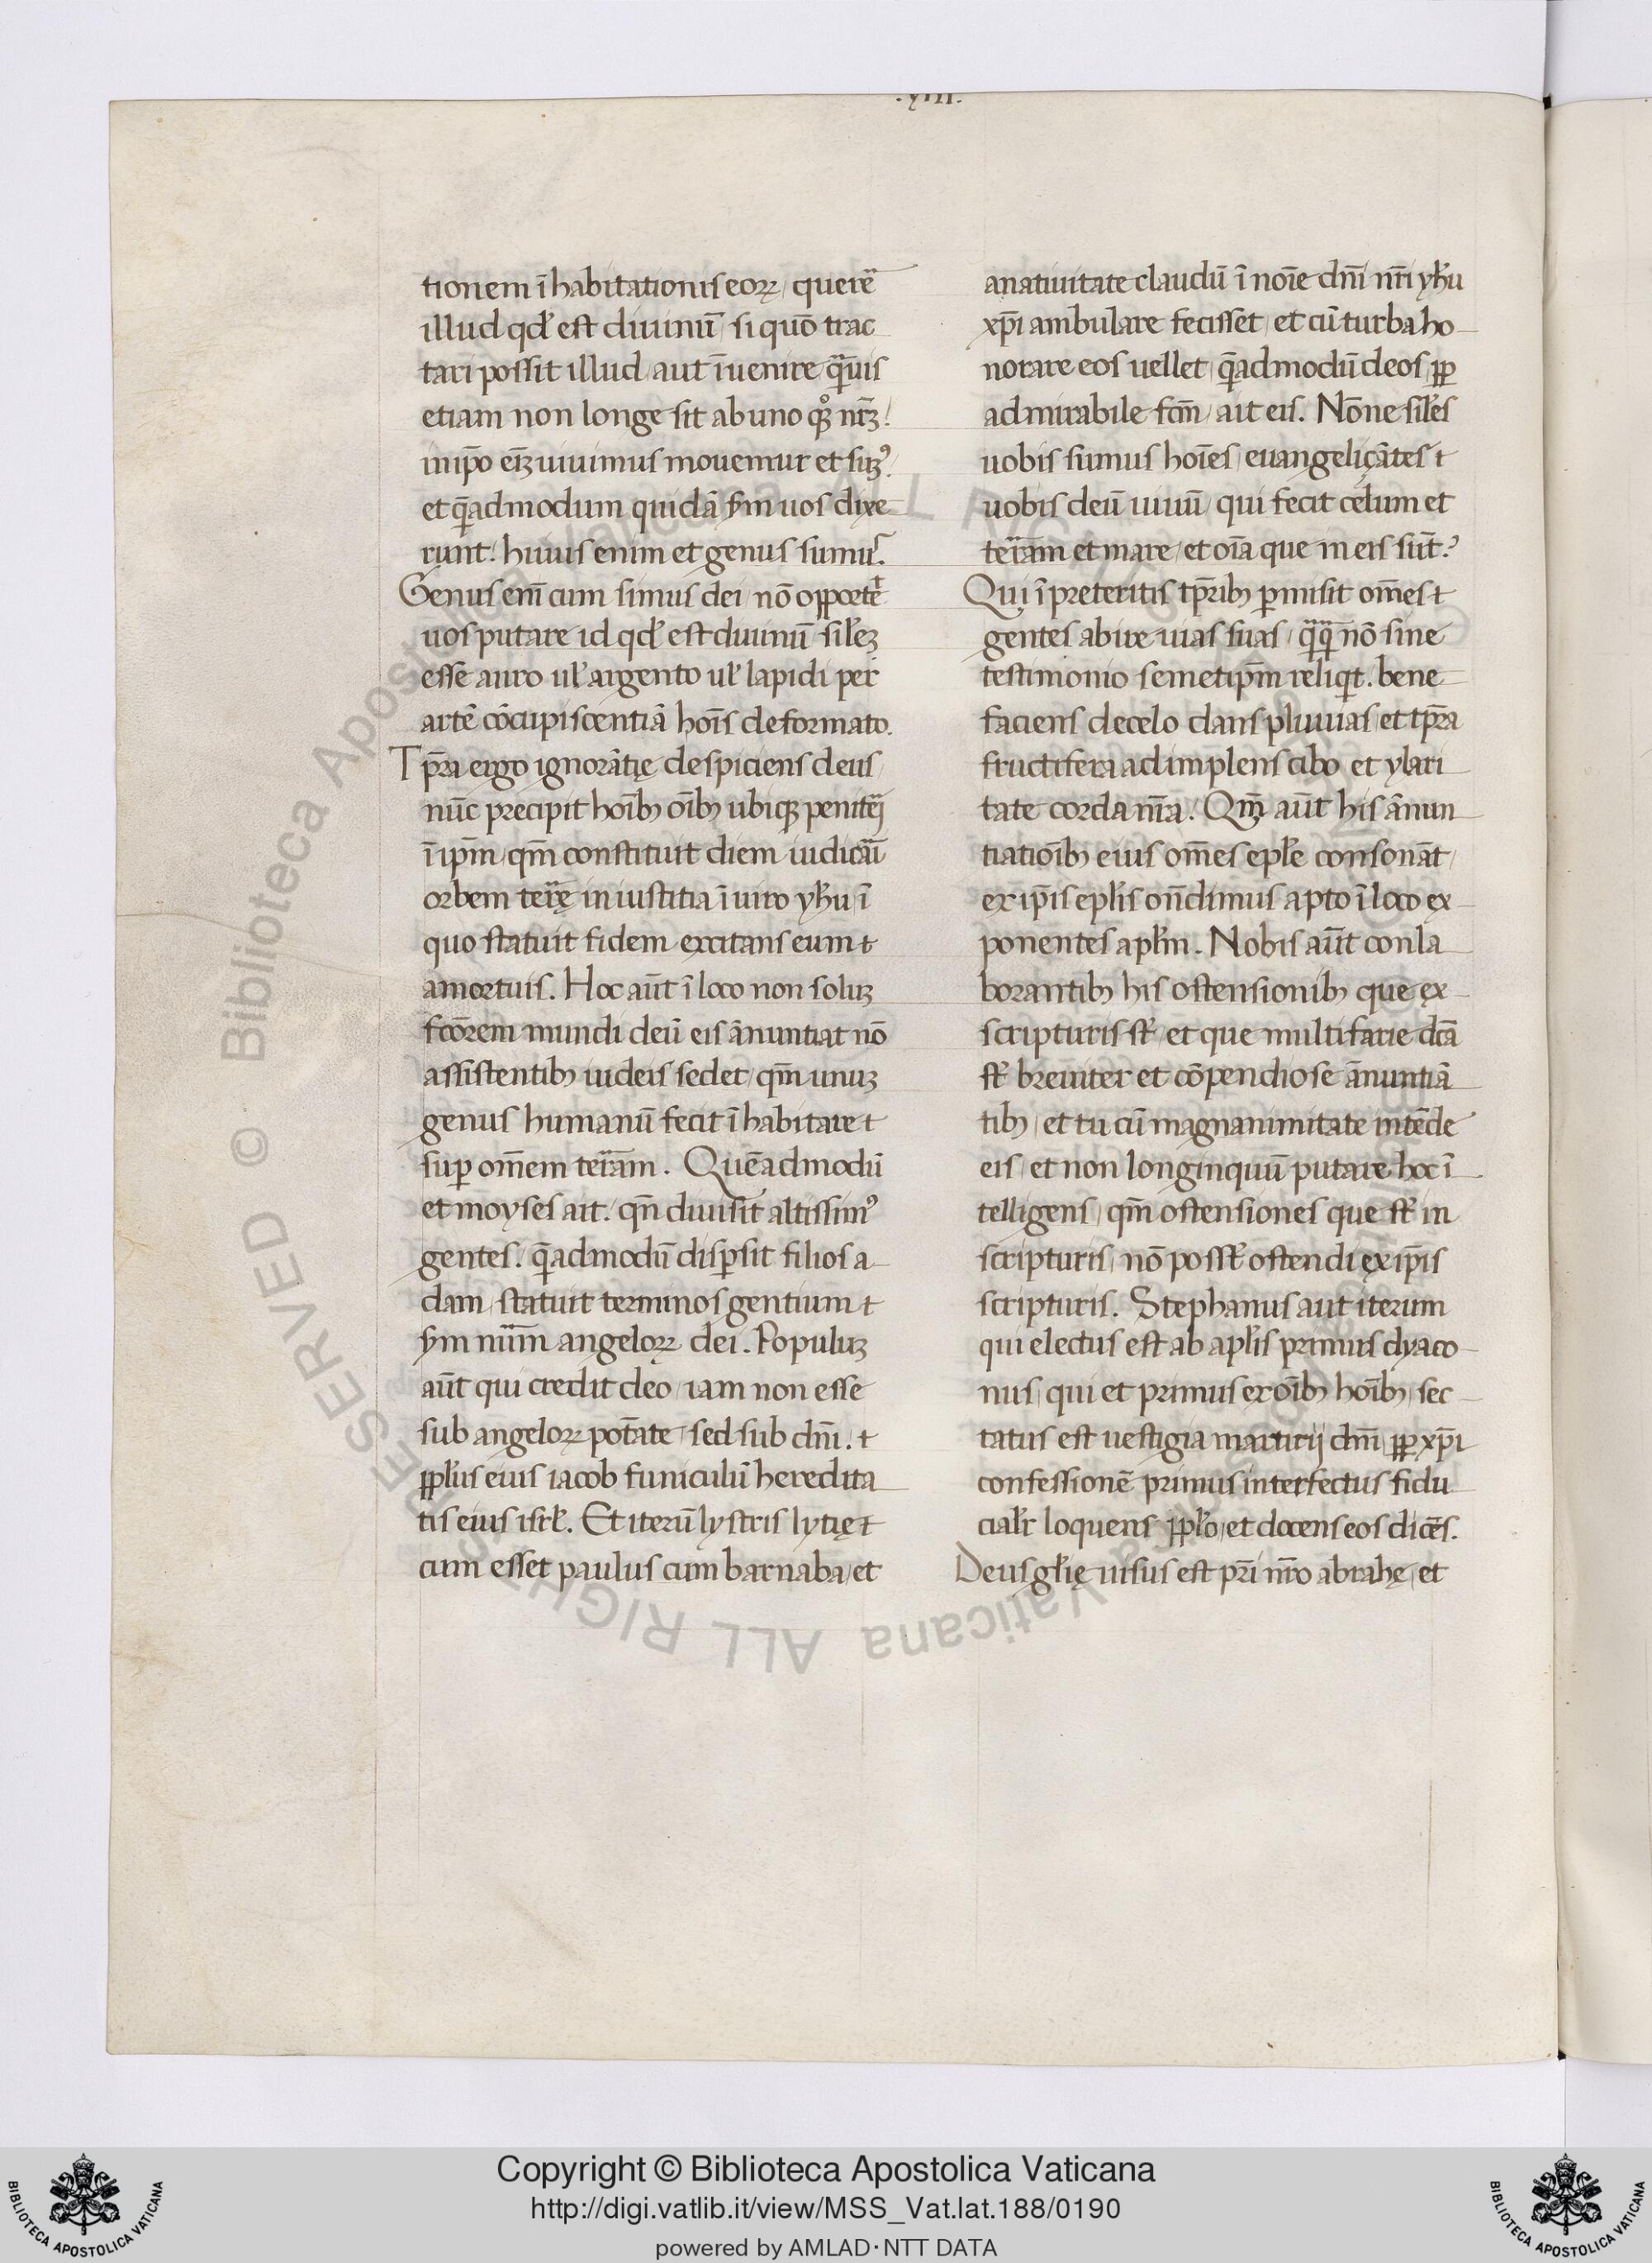 .viii.
tionem ī habitationis eoꝝ, querer̄
illud qđ est diuinū, si quō trac
tari possit illud, aut īuenire, q̄uis
etiam non longe sit ab uno qꝫ nr̄ꝫ.
in ip̄o eīꝫ uiuimus mouemur et suꝫꝰ.
et q̄admodum quidā ẜm uos dixe
runt. huius enim et genus sumus.
Genus enī cum simus dei, nō opportet
uos putare id qđ est diuinū, sil̄eꝫ
esse auro ul̄ argento ul̄ lapidi per
artē cōcupiscentiā hoīs deformato.
Tp̄ra ergo ignorātię despiciens deus,
nūc precipit hoībꝫ oībꝫ ubiqꝫ peniteri
ī ip̄m, qm̄ constituit diem iudicari
orbem terrę in iustitia ī uiro yħu, ī
quo statuit fidem excitans eum
a mortuis. Hoc aūt ī loco non soluꝫ
fcōrem mundi deū eis ānuntiat nō
assistentibꝫ iudeis sedet, qm̄ unuꝫ
genus humanū fecit ī habitare
suꝑ om̄em terram. Quēadmodū
et moyses ait. qn̄ diuisit altissimꝰ
gentes. q̄admodū disꝑsit filios a
dam, statuit terminos gentium
ẜm nūm angeloꝝ dei. Populuꝫ
aūt qui credit deo, iam non esse
sub angeloꝝ potāte, sed sub dn̄i.
ppl̄us eius iacob funiculū heredita
tis eius isrl̄. Et iterū lystris lytię
cum esset paulus cum barnaba, et
a natiuitate claudū ī noīe dn̄i nr̄i yħu
xp̄i ambulare fecisset, et cū turba ho
norare eos uellet, q̄admodū deos, pp̄
admirabile fcm̄, ait eis. Nōne sil̄es
uobis sumus hoīes, euangeliçātes
uobis deū uiuū, qui fecit celum et
terram et mare, et oīa que in eis sūt.
Qui ī preteritis tp̄ribꝫ ꝑmisit om̄es
gentes abire uias suas, q̄q̄ nō sine
testimonio semetip̄m reliqit. bene
faciens de celo dans pluuias, et tp̄ra
fructifera adimplens cibo et ylari
tate corda nr̄a. Qm̄ aūt his ānun
tiatioībꝫ eius om̄es epl̄e consonāt,
ex ip̄is epl̄is on̄dimus apto ī loco ex
ponentes apl̄m. Nobis aūt conla
borantibꝫ his ostensionibꝫ que ex
scripturis st̄, et que multifarie dcā
st̄ breuiter et cōpendiose ānuntiā
tibꝫ, et tu cū magnanimitate intēde
eis, et non longinquū putare hoc ī
telligens, qm̄ ostensiones que st̄ in
scripturis, nō posst̄ ostendi ex ip̄is
scripturis. Stephanus aut iterum
qui electus est ab apl̄is primus dyaco
nus, qui et primus ex oībꝫ hoībꝫ, sec
tatus est uestigia martirij dn̄i, pp̄ xp̄i
confessionē primus interfectus fidu
cial̄r loquens ppl̄o, et docens eos dicēs.
Deus gl̄ię uisus est pr̄i nr̄o abrahę, et
Copyright © Biblioteca Apostolica Vaticana
http://digi.vatlib.it/view/MSS_Vat.lat.188/0190
powered by AMLAD·NTT DATA